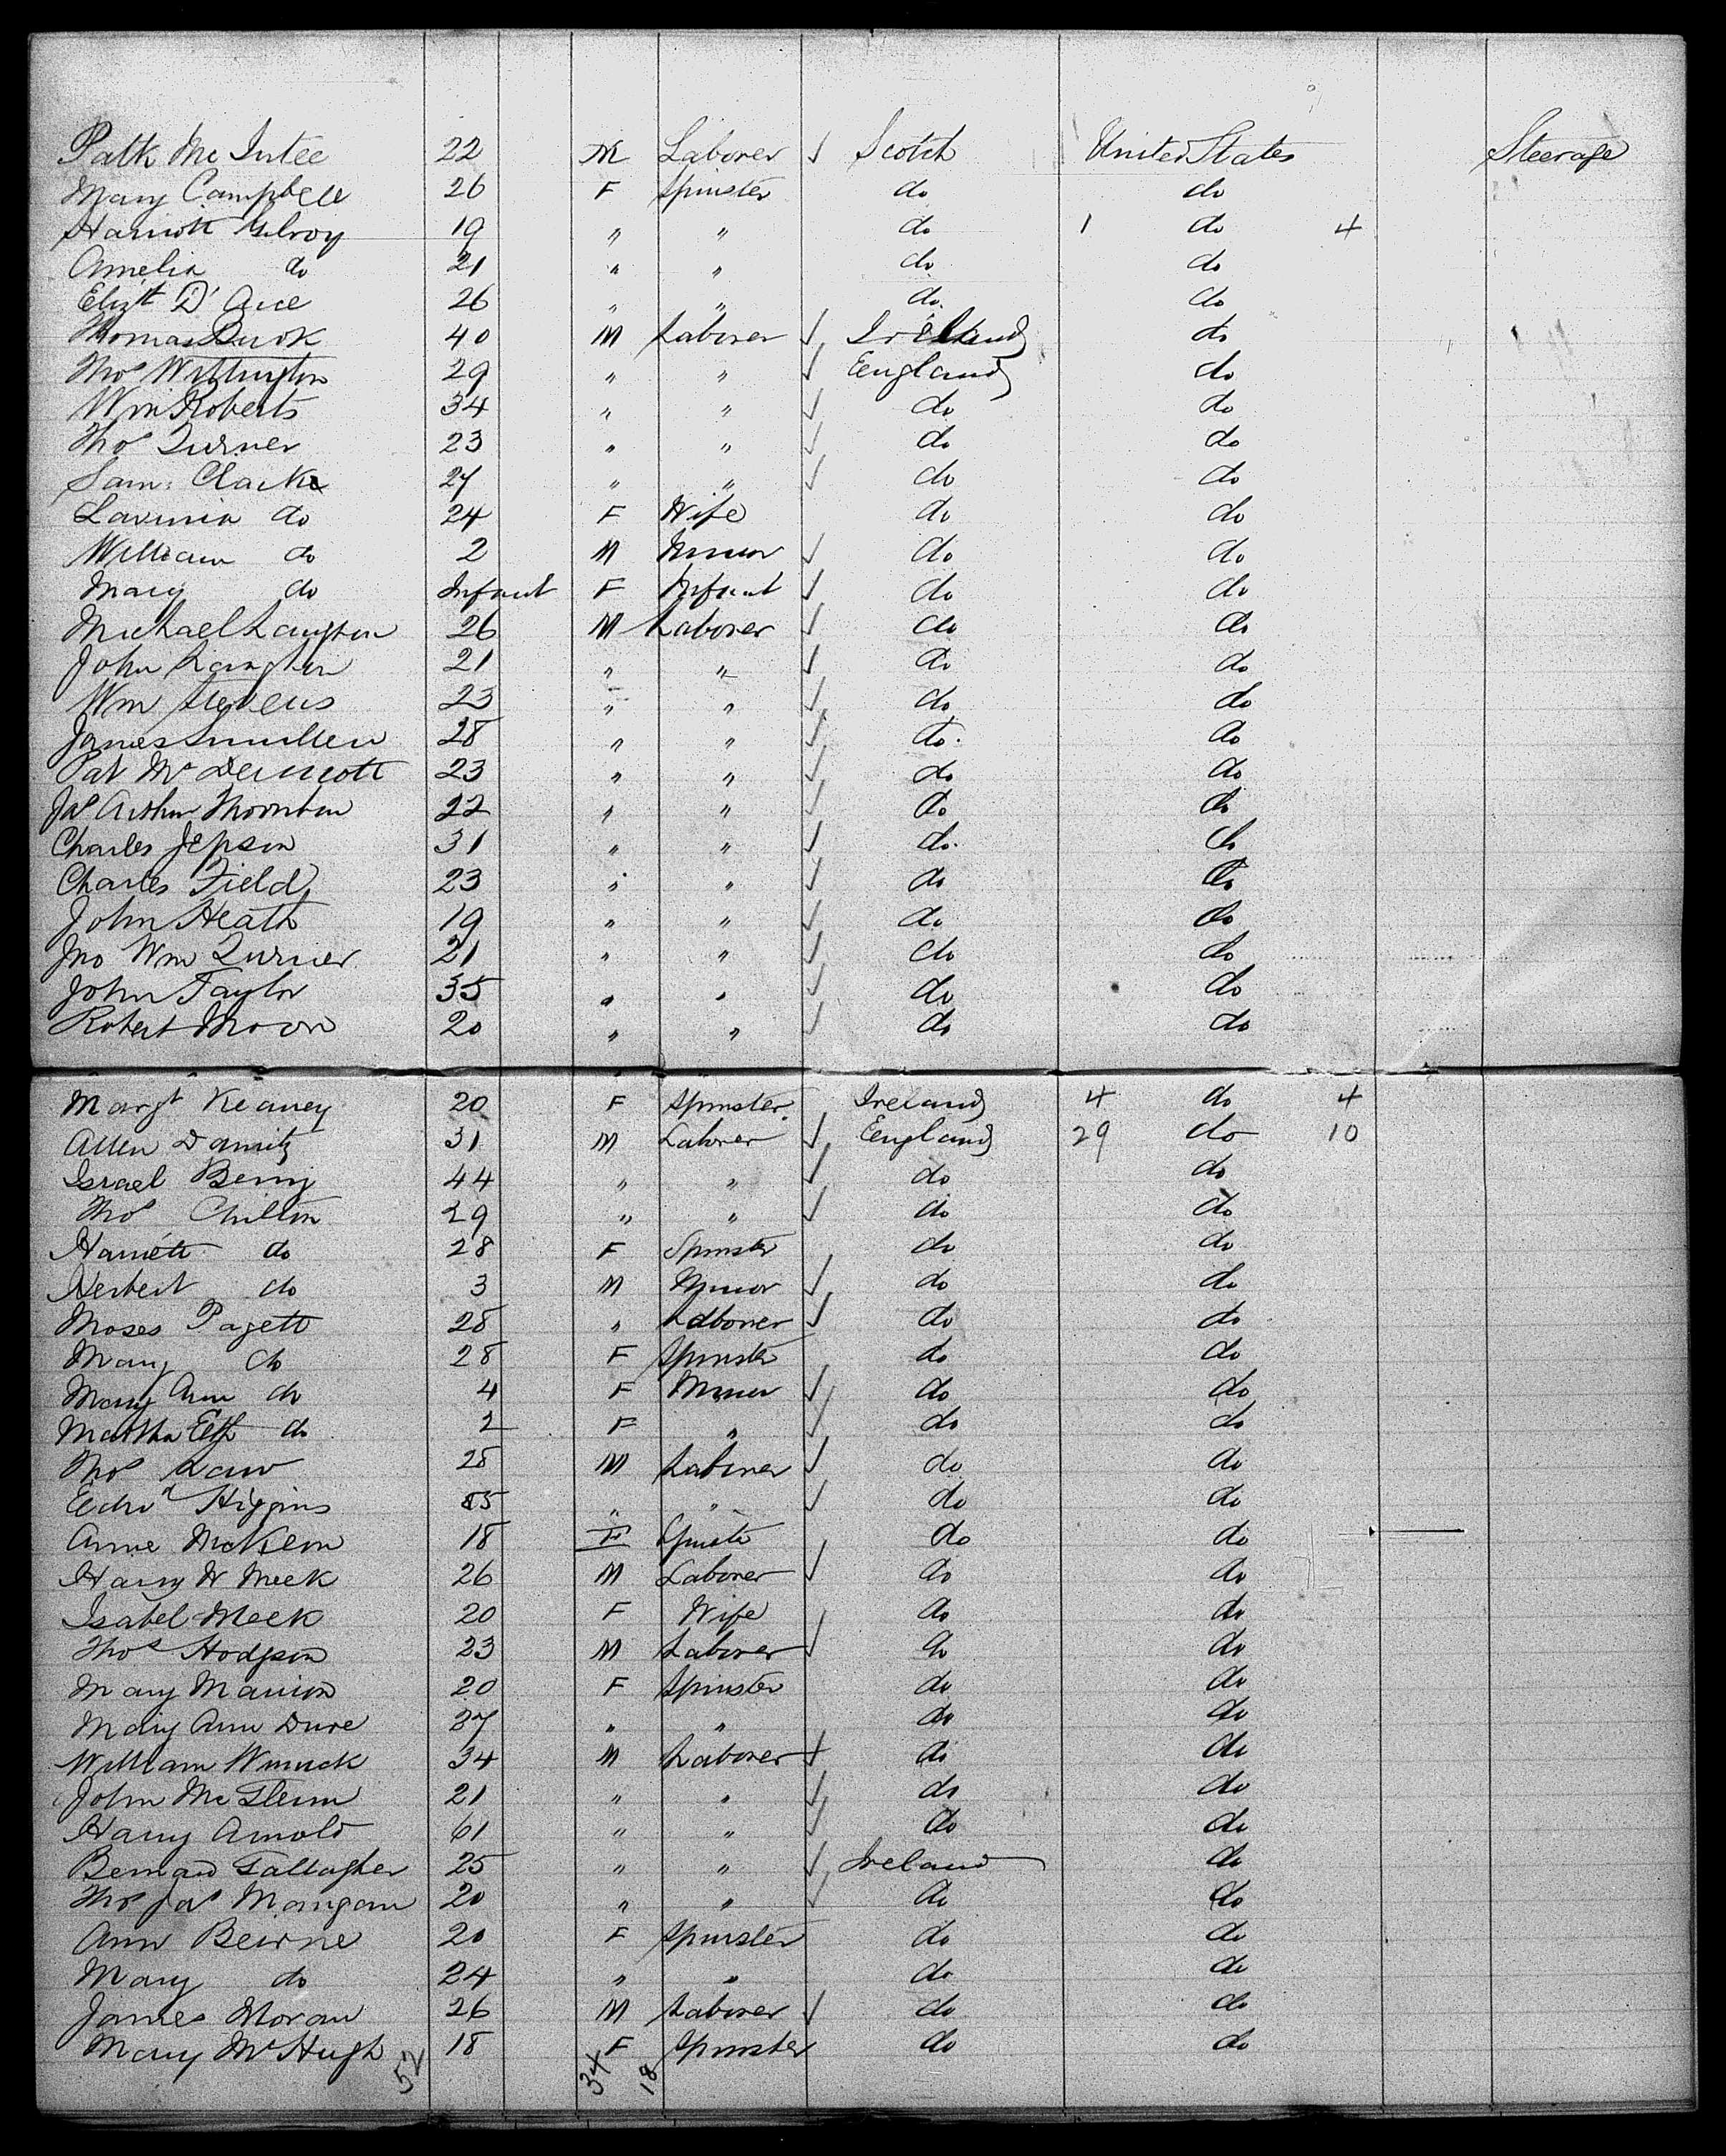 Patk McIntee 22 M Laborer ✓ Scotch United States Steerage
Mary Campbell 26 F Spinster do do
Harriott Gilroy 19 " " do 1 do 4
Amelia do 21 " " do do
Elizt D' Arce 26 " " do. do
Thomas Quirk 40 M Laborer ✓ Ireland do
Thos Withington 29 " " ✓ England do
Wm Roberts 34 " " ✓ do do
Thos Turner 23 " " ✓ do do
Sam: Clarke 27 " " ✓ do do
Lavinia do 24 F Wife do do
William do 2 M Minor ✓ do do
Mary do Infant F Infant ✓ do do
Michael Langton 26 M Laborer ✓ do do
John Langton 21 " " ✓ do do
Wm Stevens 23 " " ✓ do do
James Smullen 28 " " ✓ do. do
Pat McDermott 23 " " ✓ do do
Jas Arthur Thornton 22 " " ✓ do do
Charles Jepson 31 " " ✓ do. do
Charles Field 23 " " ✓ do do
John Heath 19 " " ✓ do do
Jno Wm Turner 21 " " ✓ do do
John Taylor 35 " " ✓ do do
Robert Moon 20 " " ✓ do do
Margt Keaney 20 F Spinster Ireland 4 do 4
Allen 31 M Laborer ✓ England 29 do 10
Israel Berry 44 " " ✓ do do
Thos Chilton 29 " " ✓ do do
Harriett do 28 F Spinster do do
Herbert do 3 M Minor ✓ do do
Moses Pagett 28 " Laborer ✓ do do
Mary do 28 F Spinster do do
Mary Ann do 4 F Minor ✓ do do
Martha Elizth do 2 F " ✓ do do
Thos Law 28 M Laborer ✓ do do
Edwd Higgins " " ✓ do do
Anne 18 F do do
Harry W Meek 26 M Laborer ✓ do do
Isabel Meek 20 F Wife do do
Thos Hodgson 23 M Laborer ✓ do do
Mary Marion 20 F Spinster do do
Mary Ann Dure 37 " " do do
William 34 M Laborer ✓ do do
John McGlenn 21 " " ✓ do do
Harry Arnold 61 " " ✓ do do
Bernard Gallagher 25 " " ✓ Ireland do
Thos Jas Mangan 20 " " ✓ do do
Ann Beirne 20 F Spinster do do
Mary do 24 " " do do
James Moran 26 M Laborer ✓ do do
Mary McHugh 18 F Spinster do do
52 34 18